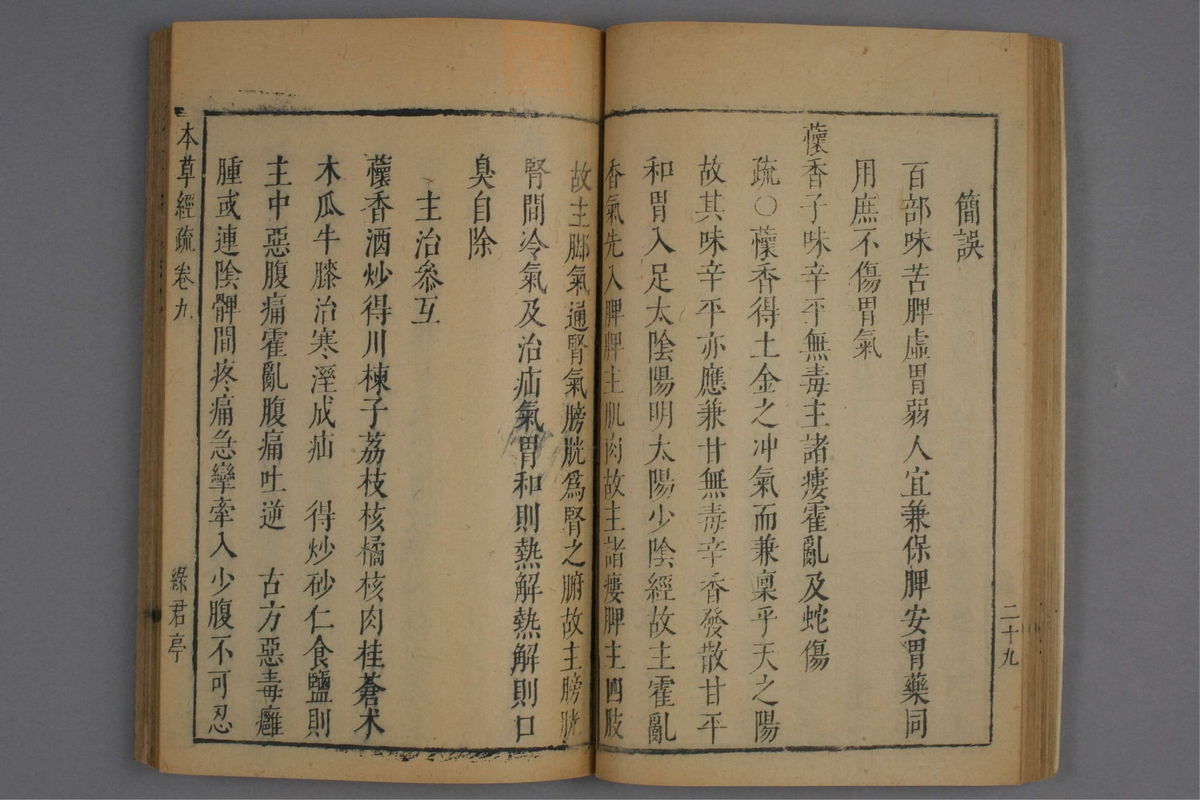 簡誤
百部味苦脾虛胃弱人宜兼保脾安胃藥同
用庶不傷胃氣
蘹香子味辛平無毒主諸瘻霍亂及蛇傷
疏〇蘹香得土金之冲氣而兼稟乎天之陽
故其味辛平亦應兼甘無毒辛香發散甘平
和胃入足太陰陽明太陽少陰經故主霍亂
香氣先入脾脾主肌肉故主諸瘻脾主四肢
二十九
故主脚氣通腎氣膀胱爲腎之腑故主膀胱
腎間冷氣及治疝氣胃和則熱解熱解則口
臭自除
主治參互
蘹香酒炒得川楝子荔枝核橘核肉桂蒼术
木瓜牛膝治寒溼成疝 得炒砂仁食鹽則
主中惡腹痛霍亂腹痛吐逆 古方惡毒癰
腫或連陰髀間疼痛急攣牽入少腹不可忍
本草經疏 卷九 綠君亭